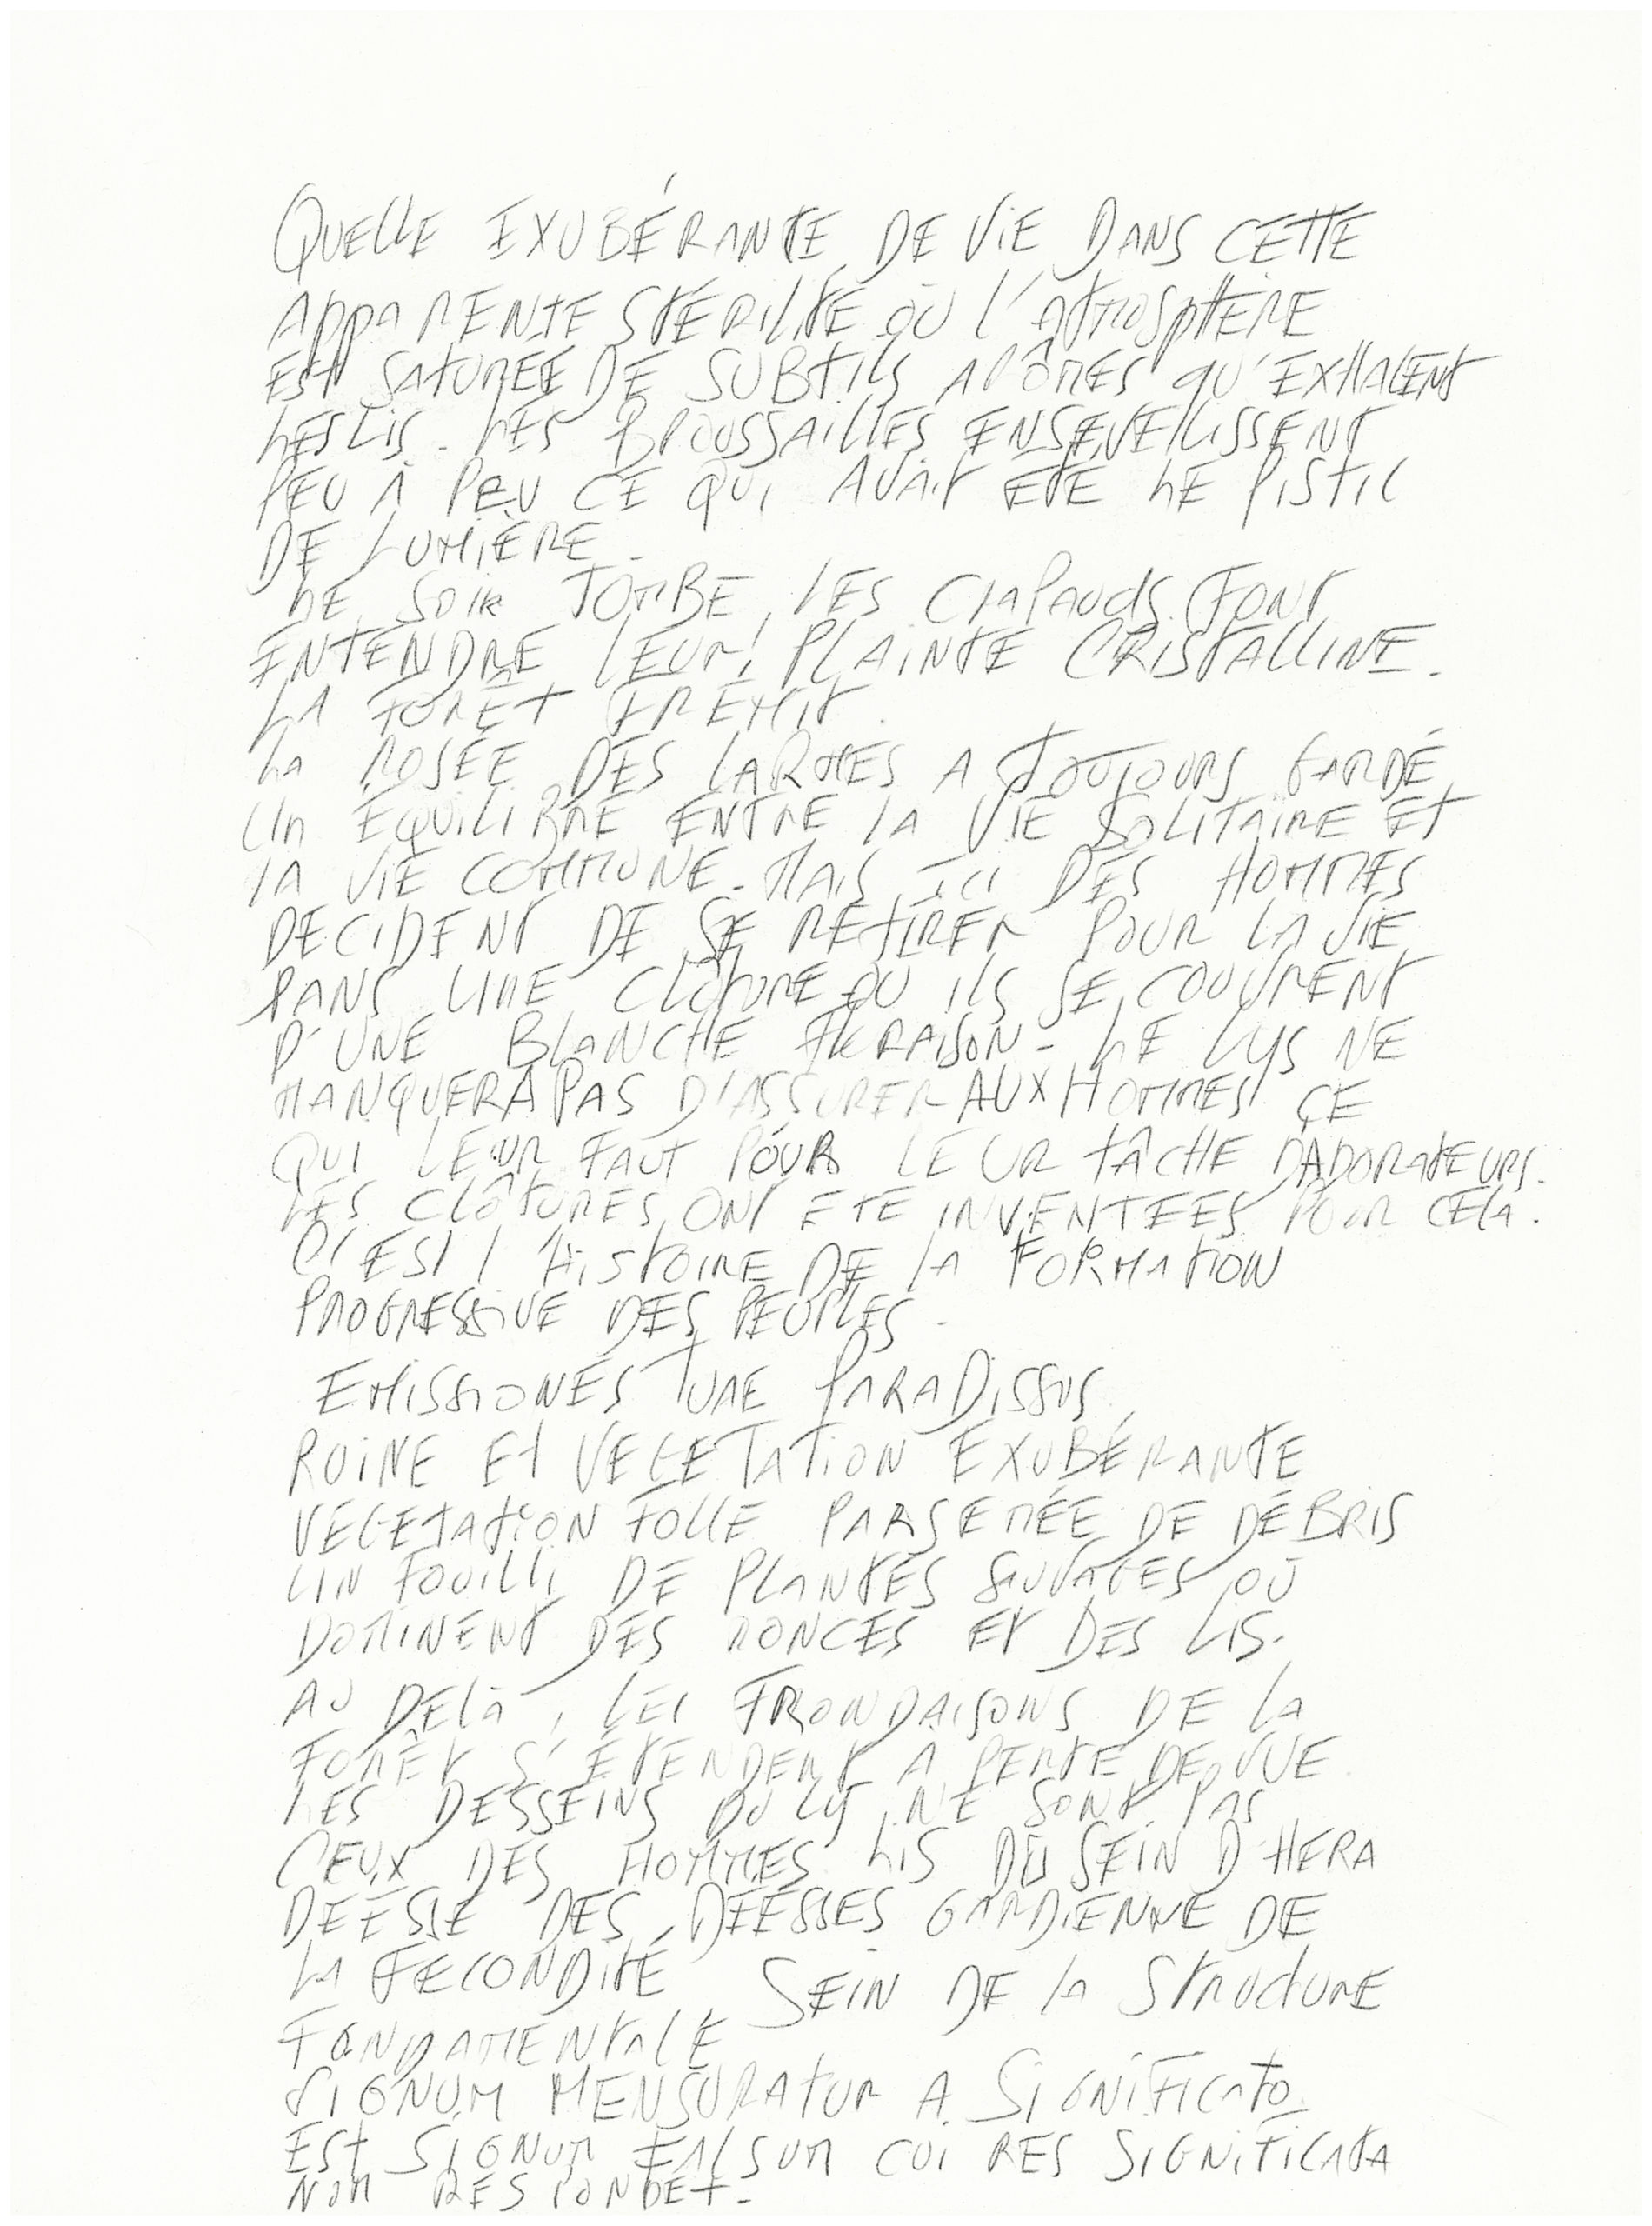 QUELLE EXUBÉRANTE DE VIE DANS CETTE
APPARENTE STÉRILITÉ OÙ L'ATMOSPHERE
EST SATURÉE DE SUBTILS ARÔMES QU'EXHALENT
LES LIS. LES BROUSSAILLES ENSEVELISSENT
PEU A PEU CE QUI AVAIT ÉTÉ LE PISTIL
DE LUMIÈRE.
LE SOIR TOMBE, LES CRAPAUDS FONT
ENTENDRE LEUR PLAINTE CRISTALLINE.
LA FORÊT FRÉMIT.
LA ROSÉE DES LARMES A TOUJOURS GARDÉ
UN ÉQUILIBRE ENTRE LA VIE SOLITAIRE ET
LA VIE COMMUNE. MAIS ICI DES HOMMES
DECIDENT DE SE RETIRER POUR LA VIE
DANS UNE CLÔTURE OU ILS SE COUVRENT
D'UNE BLANCHE FLORAISON. LE LYS NE
MANQUERA PAS D'ASSURER AUX HOMMES CE
QUI LEUR FAUT POUR LEUR TÂCHE D'ADORATEURS.
LES CLÔTURES ONT ETE INVENTEES POUR CELA.
C'EST L'HISTOIRE DE LA FORMATION
PROGRESSIVE DES PEUPLES.
EMISSIONES TUAE PARADISSUS
RUINE ET VEGETATION EXUBÉRANTE
VEGETATION FOLLE PARSEMÉE DE DÉBRIS
UN FOUILLI DE PLANTES SAUVAGES OÙ
DOMINENT DES RONCES ET DES LIS.
AU DELÀ, LES FRONDAISONS DE LA
FORÊT S'ÉTENDENT A PERTE DE VUE.
LES DESSEINS DU LYS NE SONT PAS
CEUX DES HOMMES LIS DU SEIN D'HERA
DEESSE DES DÉESSES GARDIENNE DE
LA FECONDITÉ SEIN DE LA STRUCTURE
FONDAMENTALE
SIGNUM MENSURATUR A SIGNIFICATO
EST SIGNUM FALSUM CUI RES SIGNIFICATA
NON RESPONDET.